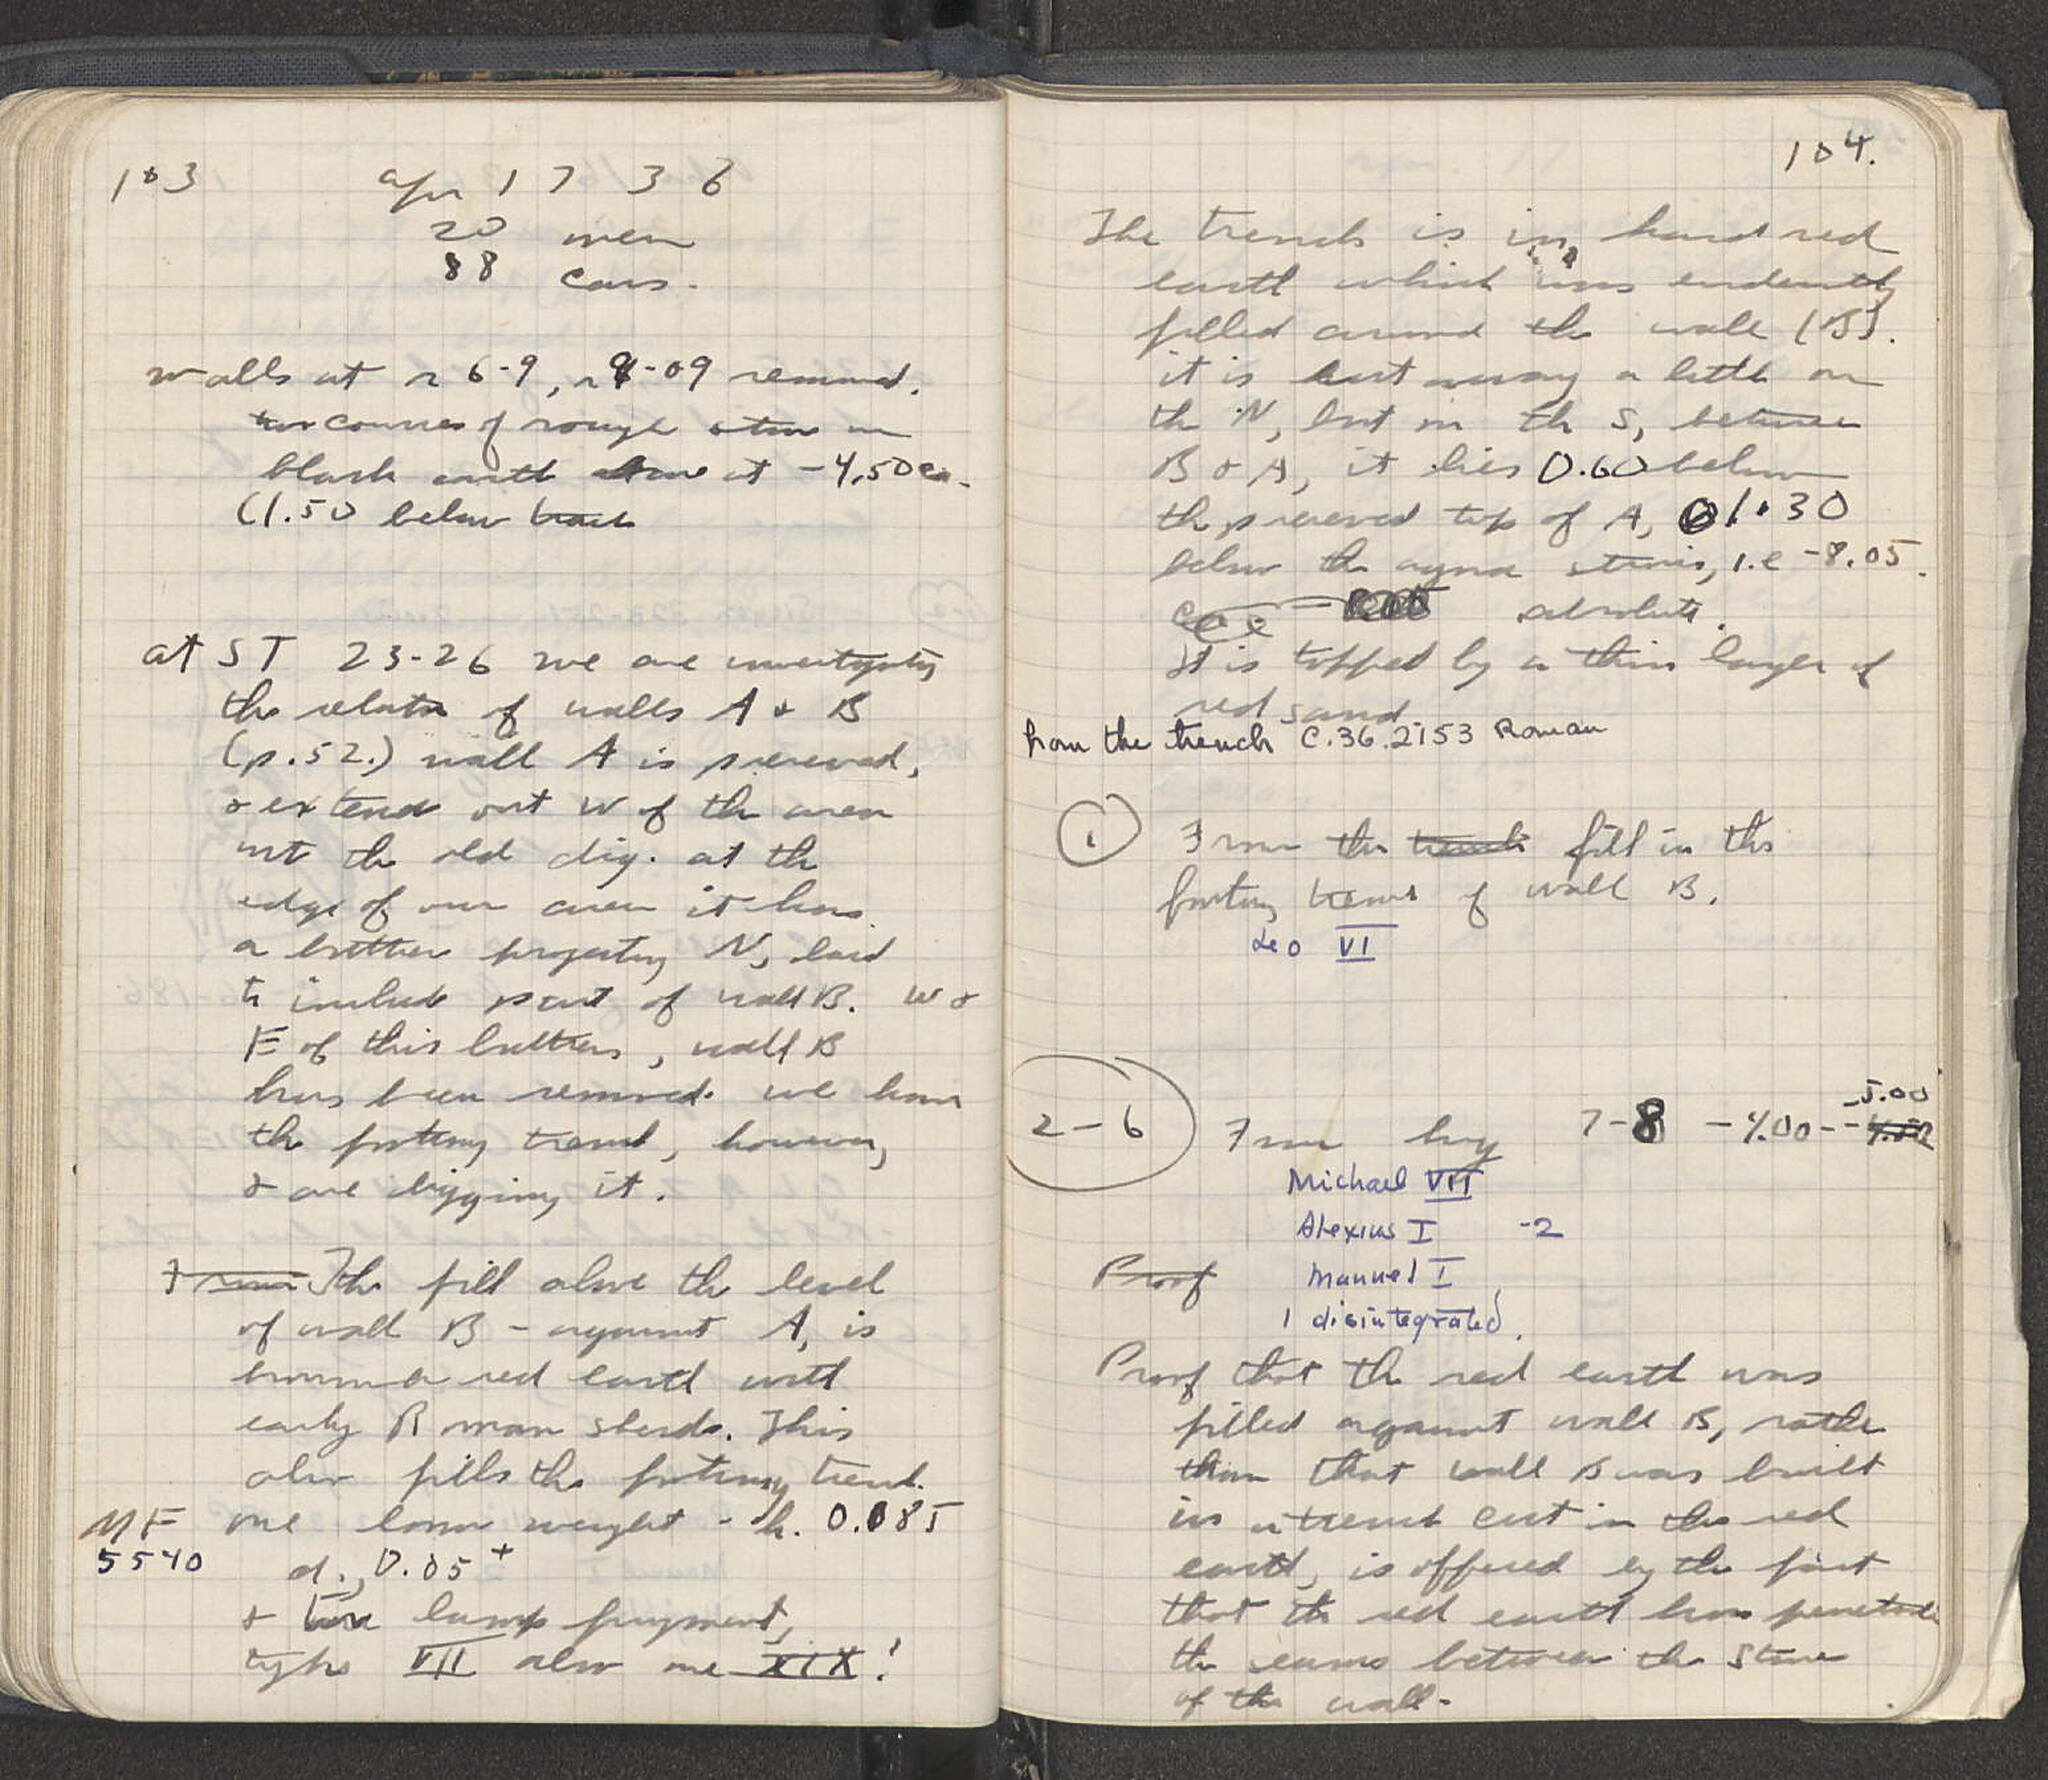 103 Apr 17 36
20 men
88 cars.
walls at r 6-9, r 8-09 removed.
courses of rough stone in
black earth at -4.50 ca.
(1.50 below track
at ST 23-26 we are investigating
the relation of walls A & B
(p.52.) wall A is preserved,
& extends out W of the area
into the old dig. at the
edge of our area it has
a buttress projecting N, laid
to include part of wall B. W &
E of this buttress, wall B
has been removed. we have
the footing trench, however,
& are digging it.
From The fill above the level
of wall B - against A, is
red earth with
early Roman sherds. This
also fills the footing trench.
MF one loom weight - h. 0.085
5540 d., 0.05+
& lamp fragments,
type VII also one XIX!
104.
The trench is in hard red
earth which was evidently
filled around the wall (B).
it is cut away a little on
the N, but on the S, between
B & A, it lies 0.60 below
the preserved top of A, 1.30
below the agora stairs, i.e -8.05.
absolute.
It is topped by a thin layer of
red sand
from the trench C.36.2153 Roman
1 From the trench fill in the
footing trench of wall B.
Leo VI
2-6 From 7-8 -4.00 - -5.00
Michael VII
Alexius I -2
Proof Manuel I
1 disintegrated.
Proof that the red earth was
filled against wall B, rather
than that wall B was built
in a trench cut in the red
earth, is offered by the fact
that the red earth has penetrated
the seams between the stones
of the wall.